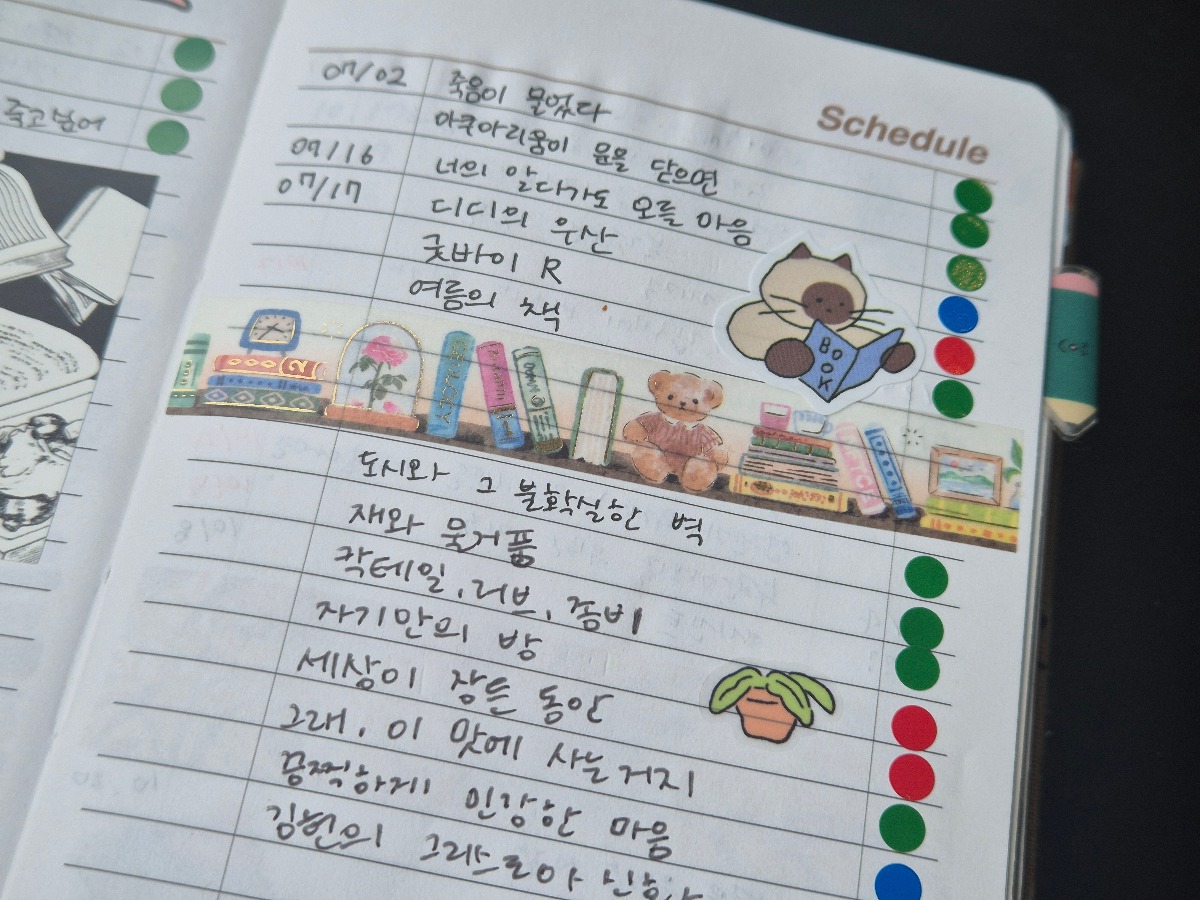 죽고 넘어
Schedule
07/02 죽음이 물었다
아쿠아리움이 문을 닫으면
07/16 너의 알다가도 모를 마음
07/17 디디의 우산
굿바이 R
여름의 책
BOOK
도시와 그 불확실한 벽
재와 물거품
칵테일, 러브, 좀비
자기만의 방
세상이 잠든 동안
그래, 이 맛에 사는거지
끔찍하게 민감한 마음
김헌의 그리스로마 신화